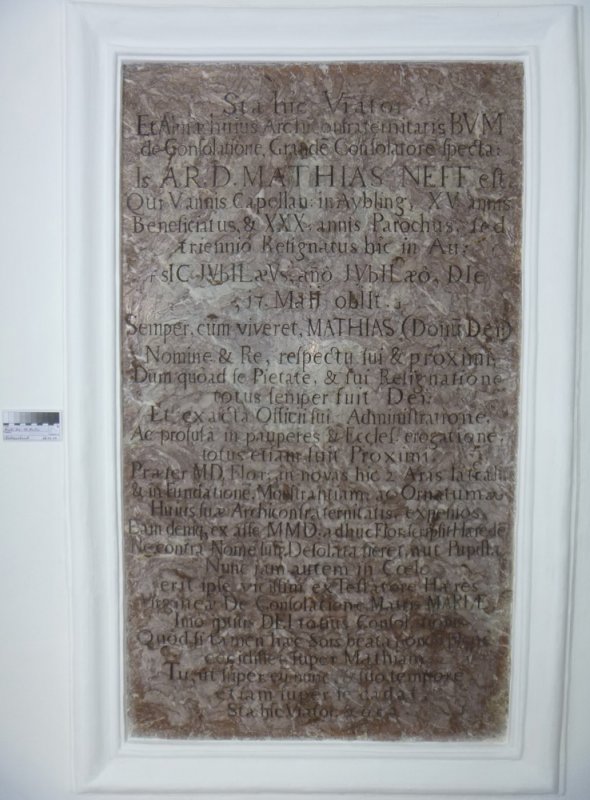 Sta hic Viator
Et Archiconfraternitatis BVM
de Consolatione, Grande Consolatore specta:
Is AR. D. MATHIAS NEFF est
Qui V annis Capellan: in Aybling, XV annis
Beneficiatus, & XXX. annis Parochus, sed
triennio Resignatus hic in Au:
sIC JVbILæVs, año JVbILæo, DIe
17. MaII obIIt.
Semper, cum viveret, MATHIAS (Donu Dei)
Nomine & Re, respectu sui & proximi,
Dum quoad se Pietate, & sui Resignatione
totus semper fuit Dei:
Et exacta Officii sui Administratione,
Ac profusa in pauperes & Eccles. erogatione,
totus etiam fuit Proximi:
Præter MD. Flor. in novas hic 2 Aras
& in Fundatione, Monstrantiam, ac Ornatum
Huius suæ Archiconfraternitatis, expensos,
Eam deniq, ex asse MMD. adhuc Flor. scripsit Hærede
Ne contra Nome suu, Desolata fieret, aut Pupilla,
Nunc iam autem in Cœlo
erit ipse vicissim ex Testatore Hæres
De Consolatione Matris MARIÆ
Imo ipsius DEI totius Consolationis
Quod si tamen hæc Sors beata
cecidisset super Mathiam
Tu, ut super eu nunc, & suo tempore
etiam super te cadat,
Sta hic Viator, & ora